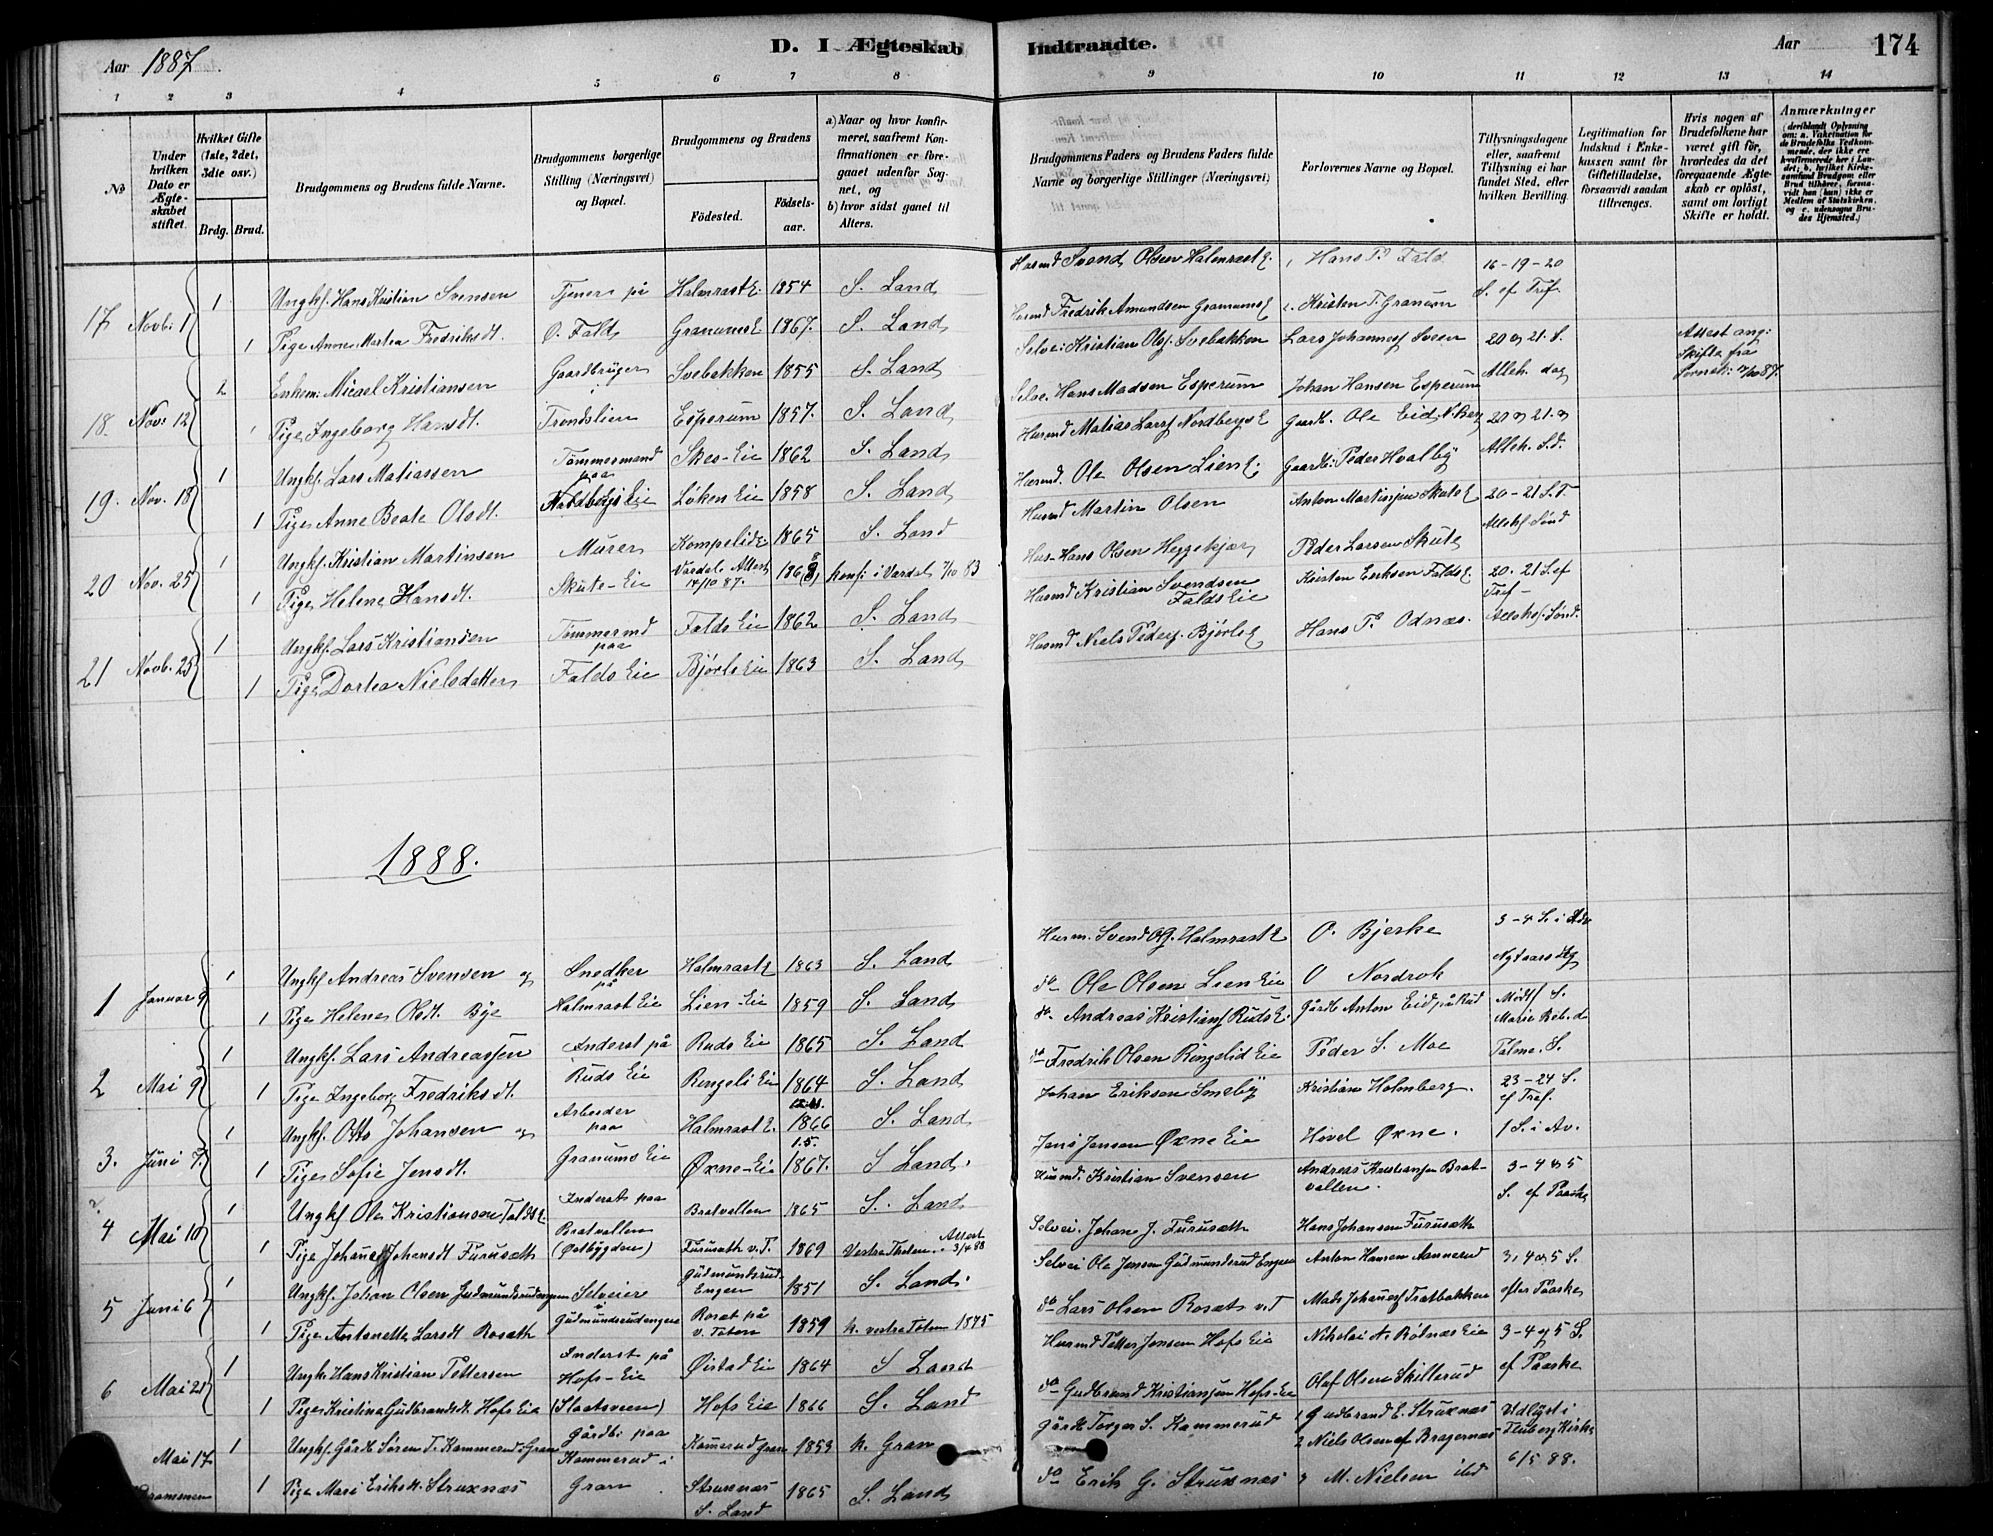 Aar 1887.
D. I Ægteskab Indtraadte.
Aar 174
1 2 3 4 5 6 7 8 9 10 11 12 13 14
No
Under hvilken Dato er Ægteskabet stiftet.
Hvilket Gifte (1ste, 2det, 3die osv.)
Brdg. Brud.
Brudgommens og Brudens fulde Navne.
Brudgommens borgerlige Stilling (Næringsvei) og Bopæl.
Brudgommens og Brudens
Fødested. Fødselsaar.
a) Naar og hvor konfirmeret, saafremt Konfirmationen er foregaaet udenfor Sognet, og
b) hvor sidst gaaet til Alters.
Brudgommens Faders og Brudens Faders fulde Navne og borgerlige Stillinger (Næringsvei)
Forlovernes Navne og Bopæl.
Tillysningsdagene eller, saafremt Tillysning ei har fundet Sted, efter hvilken Bevilling.
Legitimation for Indskud i Enkekassen samt for Giftetilladelse, forsaavidt saadan tiltrænges.
Hvis nogen af Brudefolkene har været gift før, hvorledes da det foregaaende Ægteskab er opløst, samt om lovligt Skifte er holdt.
Anmærkninger (deriblandt Oplysning om: a. Vakcination for de Brudefolks Vedkommende, der ikke ere konfirmerede her i Landet; b. hvilket Kirkesamfund Brudgom eller Brud tilhører, forsaavidt han (hun) ikke er Medlem af Statskirken, og c. udensogns Brudes Hjemsted.)
17 Novb. 1 1 Ungkf. Hans Kristian Svensen Tjener på Halmrast E. 1854 S. Land Husmd Svend Olsen Halmrast E. Hans P. Fald 16-19-20
1 Pige Anne Martea Fredriksdt. O. Falds Granums E. 1867. S. Land Husmd Fredrik Amundsen Granums E Kristen T. Granum S. ef Tref.
18. Nov: 12 2 Enkem: Micael Kristiansen Gaardbruger i Svebakken 1855 S. Land Selve: Kristian Ols. Svebakken Lars Johannes Sveen 20 og 21. S. Attest ang: Skifte fra
1 Pige Ingeborg Hansdt. Trondslien Esperum 1857. S. Land Selve. Hans Madsen Esperum Johan Hansen Esperum Alleh. dag
19. Nov. 18 1 Ungkf. Lars Matiassen Tømmermand paa Skes-Eie 1862 S. Land Husmd Matias Lars Nordbergs E Gaardb. Ole Eid, N.Berg 20 og 21. og
1 Pige Anne Beate Olsdt. Nordbergs Eie Løken Eie 1858 S. Land Husmd. Ole Olsen Lien E. Gaardb: Peder Hvalby Alleh. S.d.
20 Nov. 25 1 Ungkf. Kristian Martinsen Murer Kompelid E 1865 S. Land Husmd Martin Olsen Anton Martinsen Skuts E 20-21 S. T.
1 Pige Helene Hansdt. Skute-Eie Vardal Attest 14/10 87. 1868 Konf: i Vardal 7/10 83 Hus- Hans Olsen Heggekjær Peder Larsen Skute Allehs Sønd
21 Novb. 25 1 Ungkf. Lars Kristiansen Tømmermd paa Falds Eie 1862 S. Land Husmd Kristian Svendsen Falds Eie Kristen Eriksen Falds E. 20. 21 S. ef Tref-
1 Pige Dortea Nielsdatter Falds Eie Bjørls Eie 1863 S. Land Husmd Niels Peders. Bjørls E Hans P. Odnæs. Allehs. Sønd.
1888.
1 Januar 9 1 Ungkf Andreas Svensen og Snedker på Halmrast E 1863 S. Land Husm. Svend Ols. Halmrast E O. Bjerke 3-4 S. i Adv
1 Pige Helene Olsdt. Bye Halmrast Eie Lien-Eie 1859 S. Land do Ole Olsen Lien Eie O Nordrok Nytaars Dg
2 Mai 9 1 Ungkf. Lars Andreassen Inderst på Ruds Eie 1865 S. Land do. Andreas Kristians Ruds E. Gårdb Anton Eid på Rud Midtf S. Marie Beb. d
1 Pige Ingeborg Fredriksdt. Ruds Eie Ringeli Eie 1864 S. Land do Fredrik Olsen Ringelid Eie Peder S. Moe Palme. S.
3. Juni 7. 1 Ungkf. Otto Johansen og Arbeider paa Halmrast E. 1866 S. Land Johan Eriksen Smeby Kristian Holmberg. 23-24 S. ef Tref.
1 Pige Sofie Jensdt. Granums Eie Øxne-Eie 1.5. 1867. S Land. Jens Jensen Øxne Eie Hovel Øxne. 1 S. i Av.
4 Mai 10 1 Ungkf Ole Kristiansen Falds E Inderst paa Bratvallen 1865 S. Land Husmd. Kristian Svensen Andreas Kristiansen Bratvallen. 3-4 og 5
1 Pige Johanne Johansdt Furusæth Bratvallen (Østbygden) Furusæth v. T. 1869 Vestre Thoten. Attest 3/4 88 Selvei. Johan J. Furusæth Hans Johansen Furusæth S. ef Paaske
5 Juni 6 1 Ungkf. Johan Olsen Gudmundsrudengen Selveier i Gudmundsrud Engen 1851 S. Land. Selvei Ole Jensen Gudmundsrud Engen Anton Hansen Aannerud 3, 4 og 5 S.
1 Pige Antonette Larsdt Rosæth Gudmundsrudengen Rosæt på v. Toten 1859 k. vestre Toten 1875 do Lars Olsen Rosæt v. T Mads Johannes Tratbakken efter Paaske
6 Mai 21 1 Ungk. Hans Kristian Pettersen Inderst på Øistad Eie 1864 S Land Husmd Petter Jensen Hofs Eie Nikolai N. Rølnæs Eie 3-4 og 5 S.
1 Pige Kristina Gudbrandsdt. Hofs Eie Hofs-Eie (Slaatsveen) Hofs Eie 1866 S. Land do Gudbrand Kristiansen Hofs-Eie Olaf Olsen Skillerud ef Paaske
Mai 17 1 Ungkf. Gårdb. Søren T. Kammerud. Gran Gårdb. paa Kamerud Gran 1853 k. Gran Gårdb Torger S. Kammerud 1 Gudbrand E. Struxnæs Udlyst i
Drammen 1 Pige Mari Eriksdt. Struxnæs Kammerud i Gran Struxnæs S. Land 1865 S. Land do Erik G. Struxnæs 2 Niels Olsen af Bragernæs Fluberg Kirke
3 M. Nielsen ibd 6/5 88.